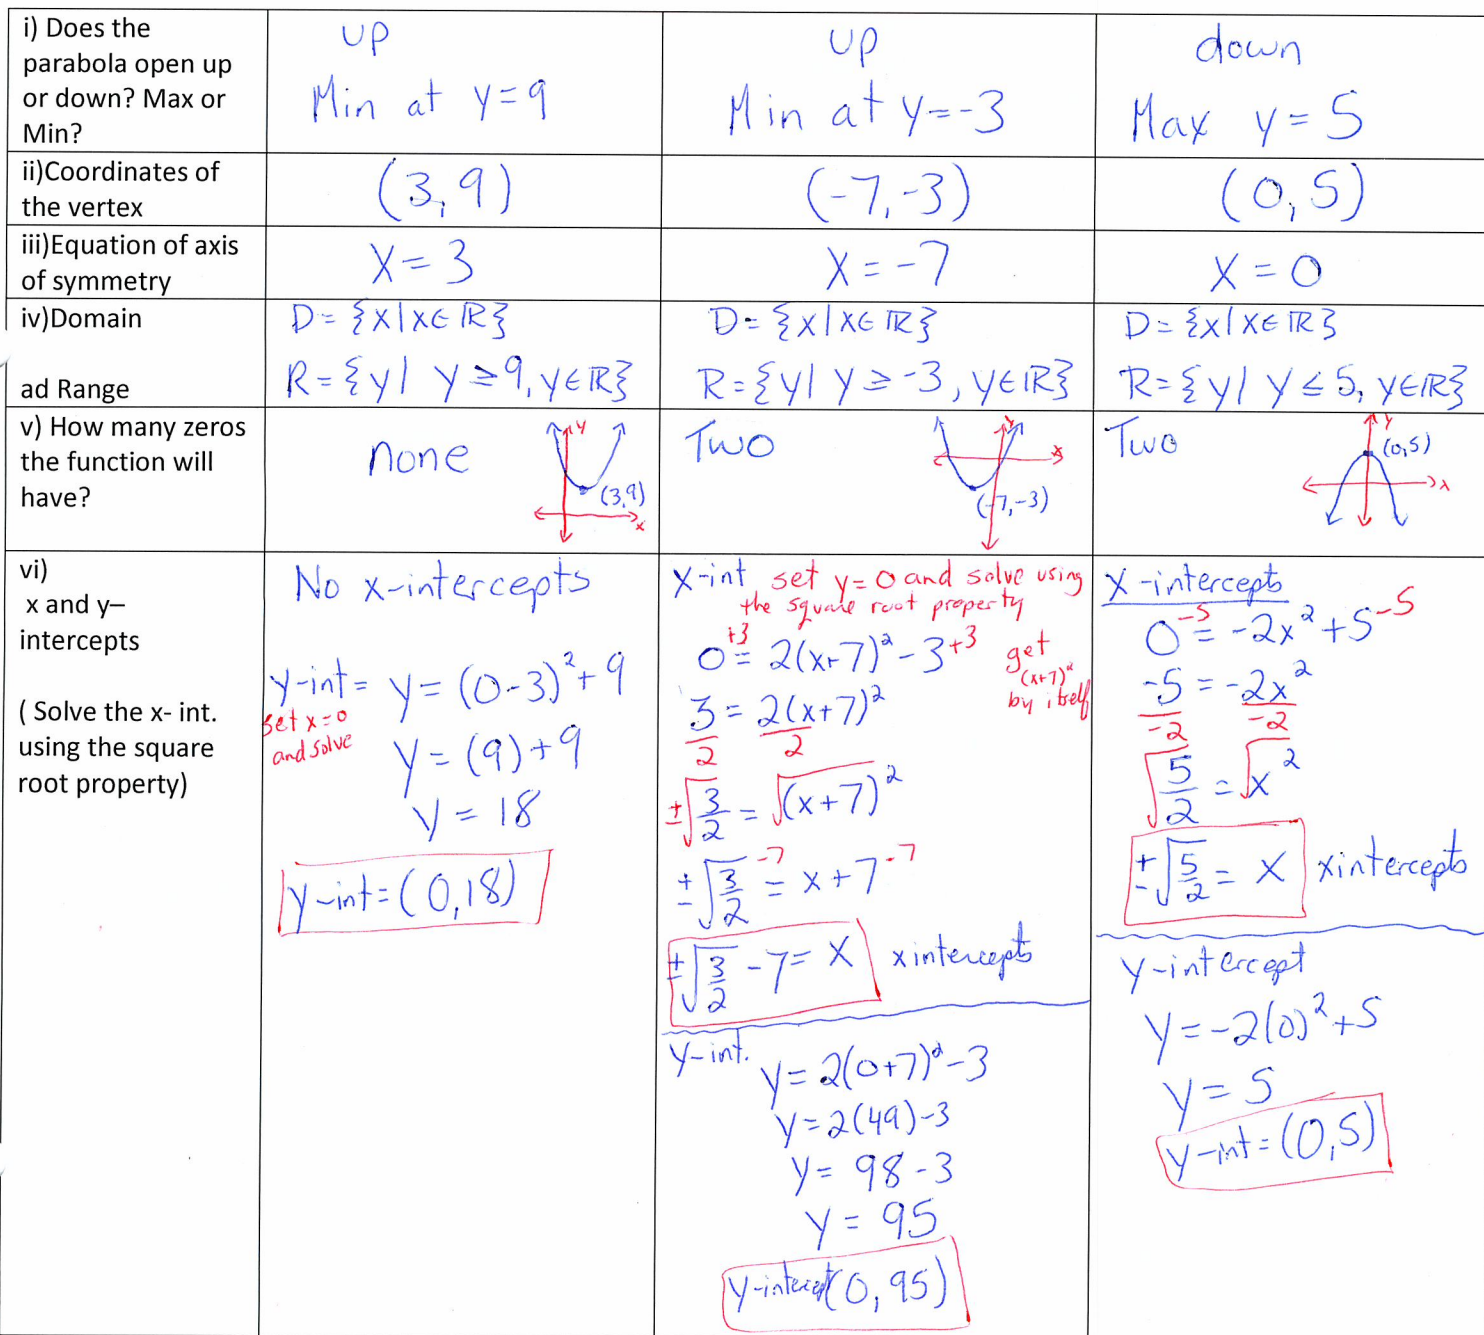 i) Does the
parabola open up
or down? Max or
Min?
up
Min at y=9
up
Min at y=-3
down
Max y = 5
ii)Coordinates of
the vertex
(3,9)
(-7,-3)
(0,5)
iii)Equation of axis
of symmetry
X = 3
X = -7
X = 0
iv)Domain
ad Range
D = {x|x∈ℝ}
R = {y| y ≥ 9, y∈ℝ}
D = {x|x∈ℝ}
R = {y| y ≥ -3, y∈ℝ}
D = {x|x∈ℝ}
R = {y| y ≤ 5, y∈ℝ}
v) How many zeros
the function will
have?
none
y
(3,9)
x
Two
y
x
(-7,-3)
Two
y
(0,5)
x
vi)
x and y–
intercepts
( Solve the x- int.
using the square
root property)
No x-intercepts
y-int = y = (0-3)² + 9
set x=0
and solve
y = (9)+9
y = 18
y-int = (0,18)
x-int set y=0 and solve using
the square root property
0 +3 = 2(x+7)² - 3 +3
get
(x+7)²
by itself
3/2 = 2(x+7)²/2
±√3/2 = √(x+7)²
±√3/2 -7 = x+7 -7
±√3/2 - 7 = x x intercepts
y-int.
y = 2(0+7)² - 3
y = 2(49) - 3
y = 98 - 3
y = 95
y-intercept (0, 95)
x-intercepts
0 -5 = -2x² + 5 -5
-5/-2 = -2x²/-2
√5/2 = √x²
±√5/2 = x x intercepts
y-intercept
y = -2(0)² + 5
y = 5
y-int = (0,5)